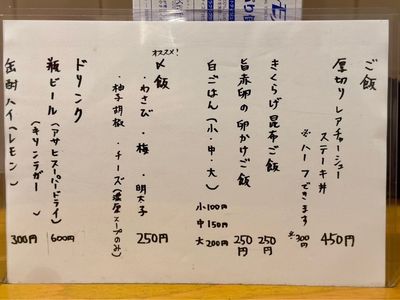 ご飯
厚切りレアチャーシュー
ステーキ丼 450円
※ハーフできます ※300円
きくらげ昆布ご飯 250円
旨赤卵の卵かけご飯 250円
白ごはん(小・中・大) 小100円
中150円
大200円
オススメ!
〆飯 250円
・わさび ・梅 ・明太子
・柚子胡椒 ・チーズ(濃厚スープのみ)
ドリンク
瓶ビール(アサヒスーパードライ) 600円
(キリンラガー)
缶酎ハイ(レモン) 300円